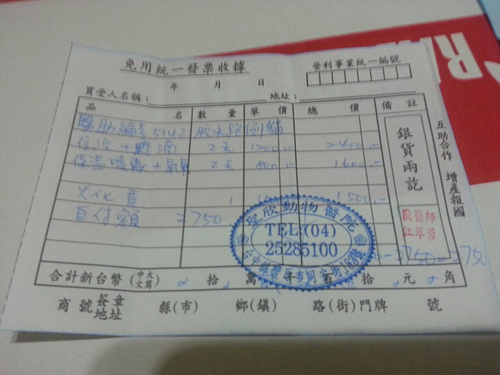 免用統一發票收據
營利事業統一編號
年 月 日
買受人名稱： 地址：
品 名 數量 單價 總 價 備 註
醫助編號5142
住院+點滴 2天 1200 2400
保溫 +氧氣 2天 800 1600
火化費 1 1500
自付額 =750
聖欣動物醫院
TEL:(04)
25285100
銀貨兩訖
互助合作 增產報國
合計新台幣(中文大寫) 拾 萬 百 拾 元 角
商號 簽章地址 縣(市) 鄉(鎮) 路(街)門牌 號